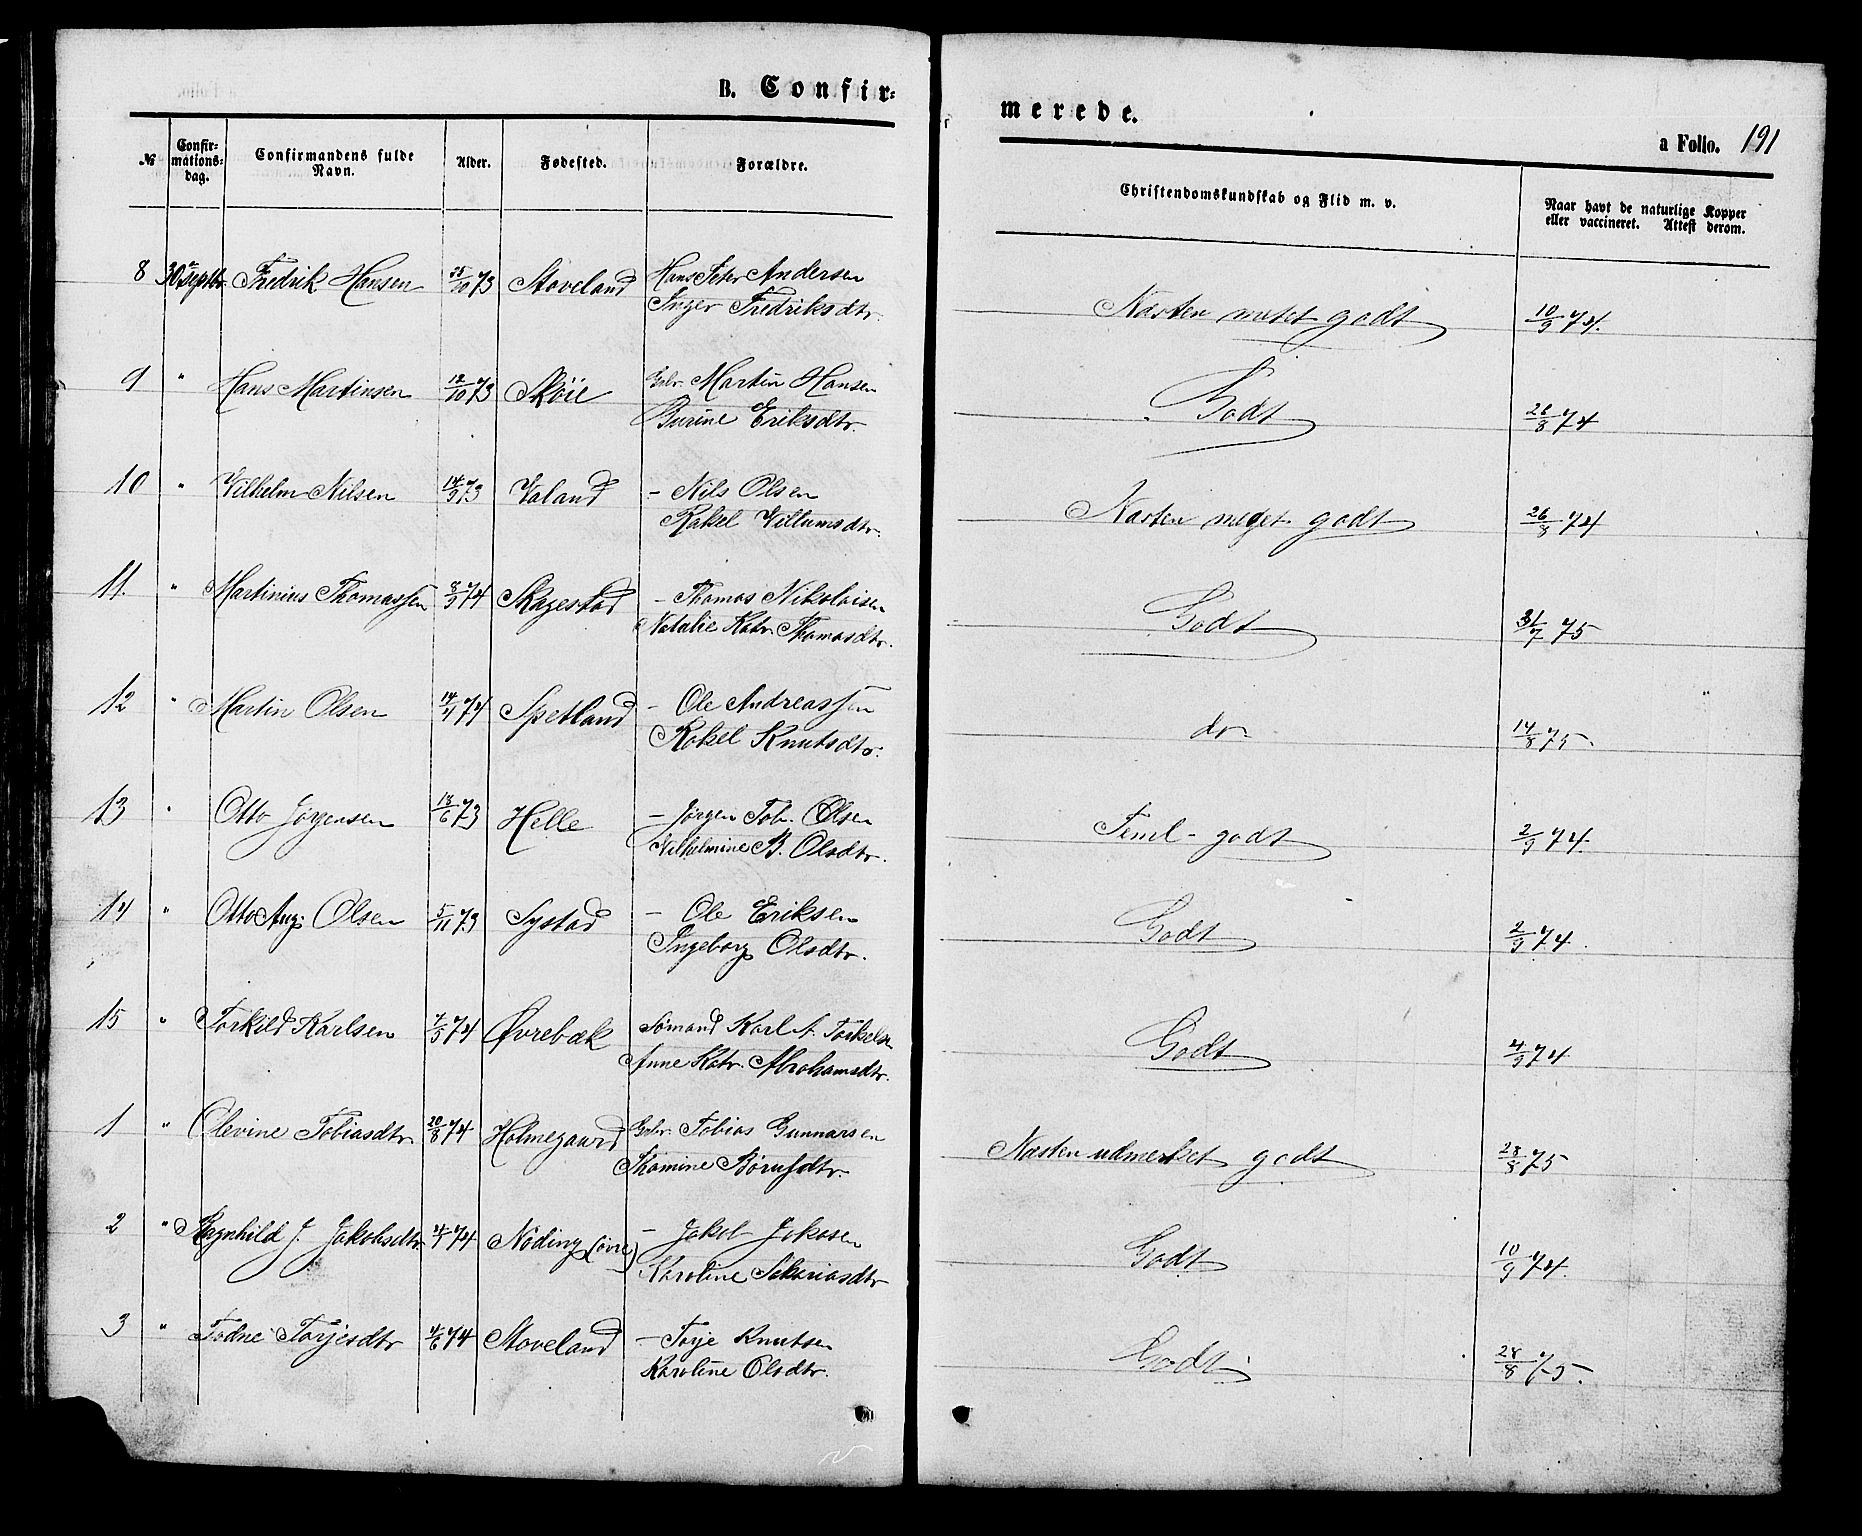 B. Confir-
merede.
a Folio. 191
№ Confir-mations-dag. Confirmandens fulde Navn. Alder. Fødested. Forældre. Christendomskundskab og Flid m. v. Naar havt de naturlige Kopper eller vaccineret. Attest derom.
8 30 septbr. Fredrik Hansen 25/10 73 Stoveland Hans Peter Andersen
Inger Fredriksdtr. Næsten meget godt 10/9 74.
9 " Hans Martinsen 12/10 73 Skøie Gbr. Martin Hansen
Burine Eriksdtr. Godt 26/8 74
10 " Vilhelm Nilsen 14/9 73 Valand - Nils Olsen
Rakel Villumsdtr. Næsten meget godt 26/8 74
11. " Martinius Thomassen 8/9 74 Skagestad - Thomas Nikolaisen
Natalie Katr. Thomasdtr. Godt 31/7 75
12 " Martin Olsen 14/4 74 Spetland - Ole Andreassen
Rakel Knutsdtr. do 14/8 75.
13 " Otto Jørgensen 18/6 73 Helle - Jørgen Tob. Olsen
Vilhelmine B. Olsdtr. Teml - godt 2/9 74.
14 " Otto Aug. Olsen 5/11 73 Systad - Ole Eriksen
Ingeborg Olsdtr. Godt 2/9 74.
15 " Torkild Karlsen 74 Øvrebæk Sømand Karl A. Torkelsen
Anne Katr. Abrahamsdtr. Godt 4/9 74
1 " Olevine Tobiasdtr 20/8 74 Holmegaard Gbr. Tobias Gunnarsen
Thomine Børufsdtr. Næsten udmerket godt 28/8 75
2 " Ragnhild J. Jakobsdtr. 74 Nøding (øvre) - Jakob Jokosen
Karoline Sakariasdtr Godt 10/9 74.
3 " Todne Torjesdtr 4/6 74 Stoveland - Torje Knutsen
Karoline Olsdtr. Godt 28/8 75.